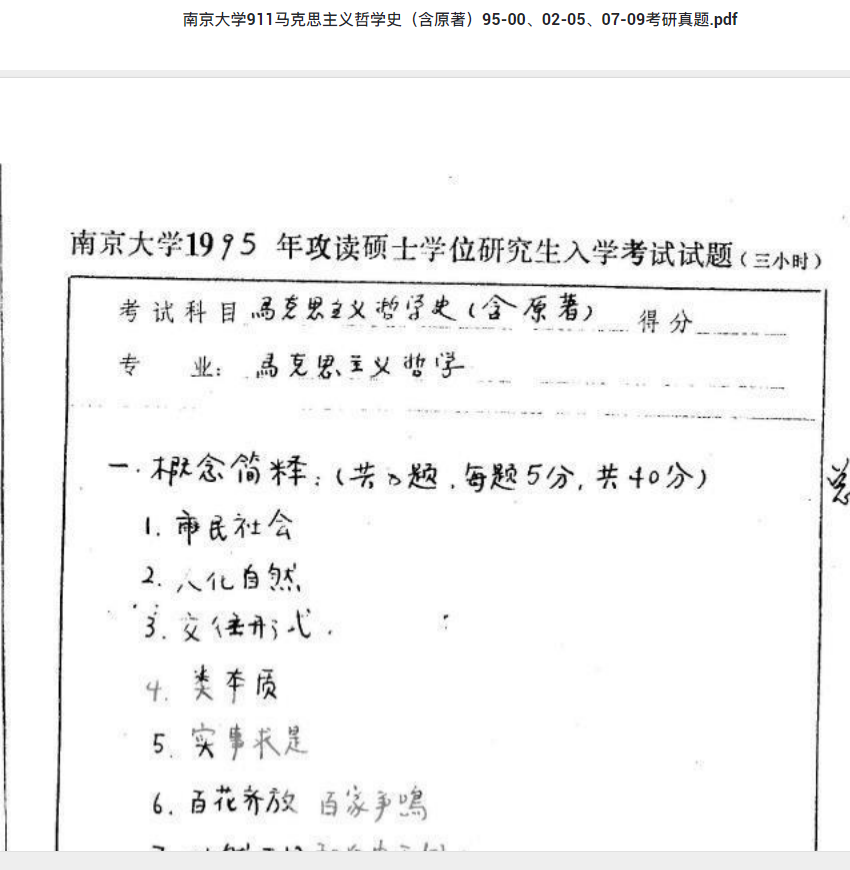 南京大学911马克思主义哲学史（含原著）95-00、02-05、07-09考研真题.pdf
南京大学1995 年攻读硕士学位研究生入学考试试题（三小时）
考试科目 马克思主义哲学史（含原著） 得分
专 业： 马克思主义哲学
一. 概念简释：（共8题，每题5分，共40分）
1. 市民社会
2. 人化自然
3. 交往形式.
4. 类本质
5. 实事求是
6. 百花齐放 百家争鸣
7.